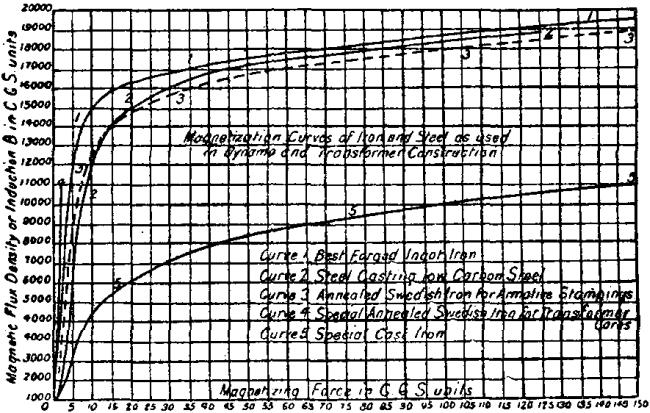 Magnetic Flux Density or Induction B in C.G.S. units
20000
19000
18000
17000
16000
15000
14000
13000
12000
11000
10000
9000
8000
7000
6000
5000
4000
3000
2000
1000
1
1
2
3
3
3
1
2
3
2
4
5
5
5
Magnetization Curves of Iron and Steel as used
in Dynamo and Transformer Construction
Curve 1 Best Forged Ingot Iron
Curve 2 Steel Casting low Carbon Steel
Curve 3 Annealed Swedish Iron for Armature Stampings
Curve 4 Special Annealed Swedish Iron for Transformer
Cores
Curve 5 Special Cast Iron
Magnetizing Force in C.G.S. units
0 5 10 15 20 25 30 35 40 45 50 55 60 65 70 75 80 85 90 95 100 105 110 115 120 125 130 135 140 145 150